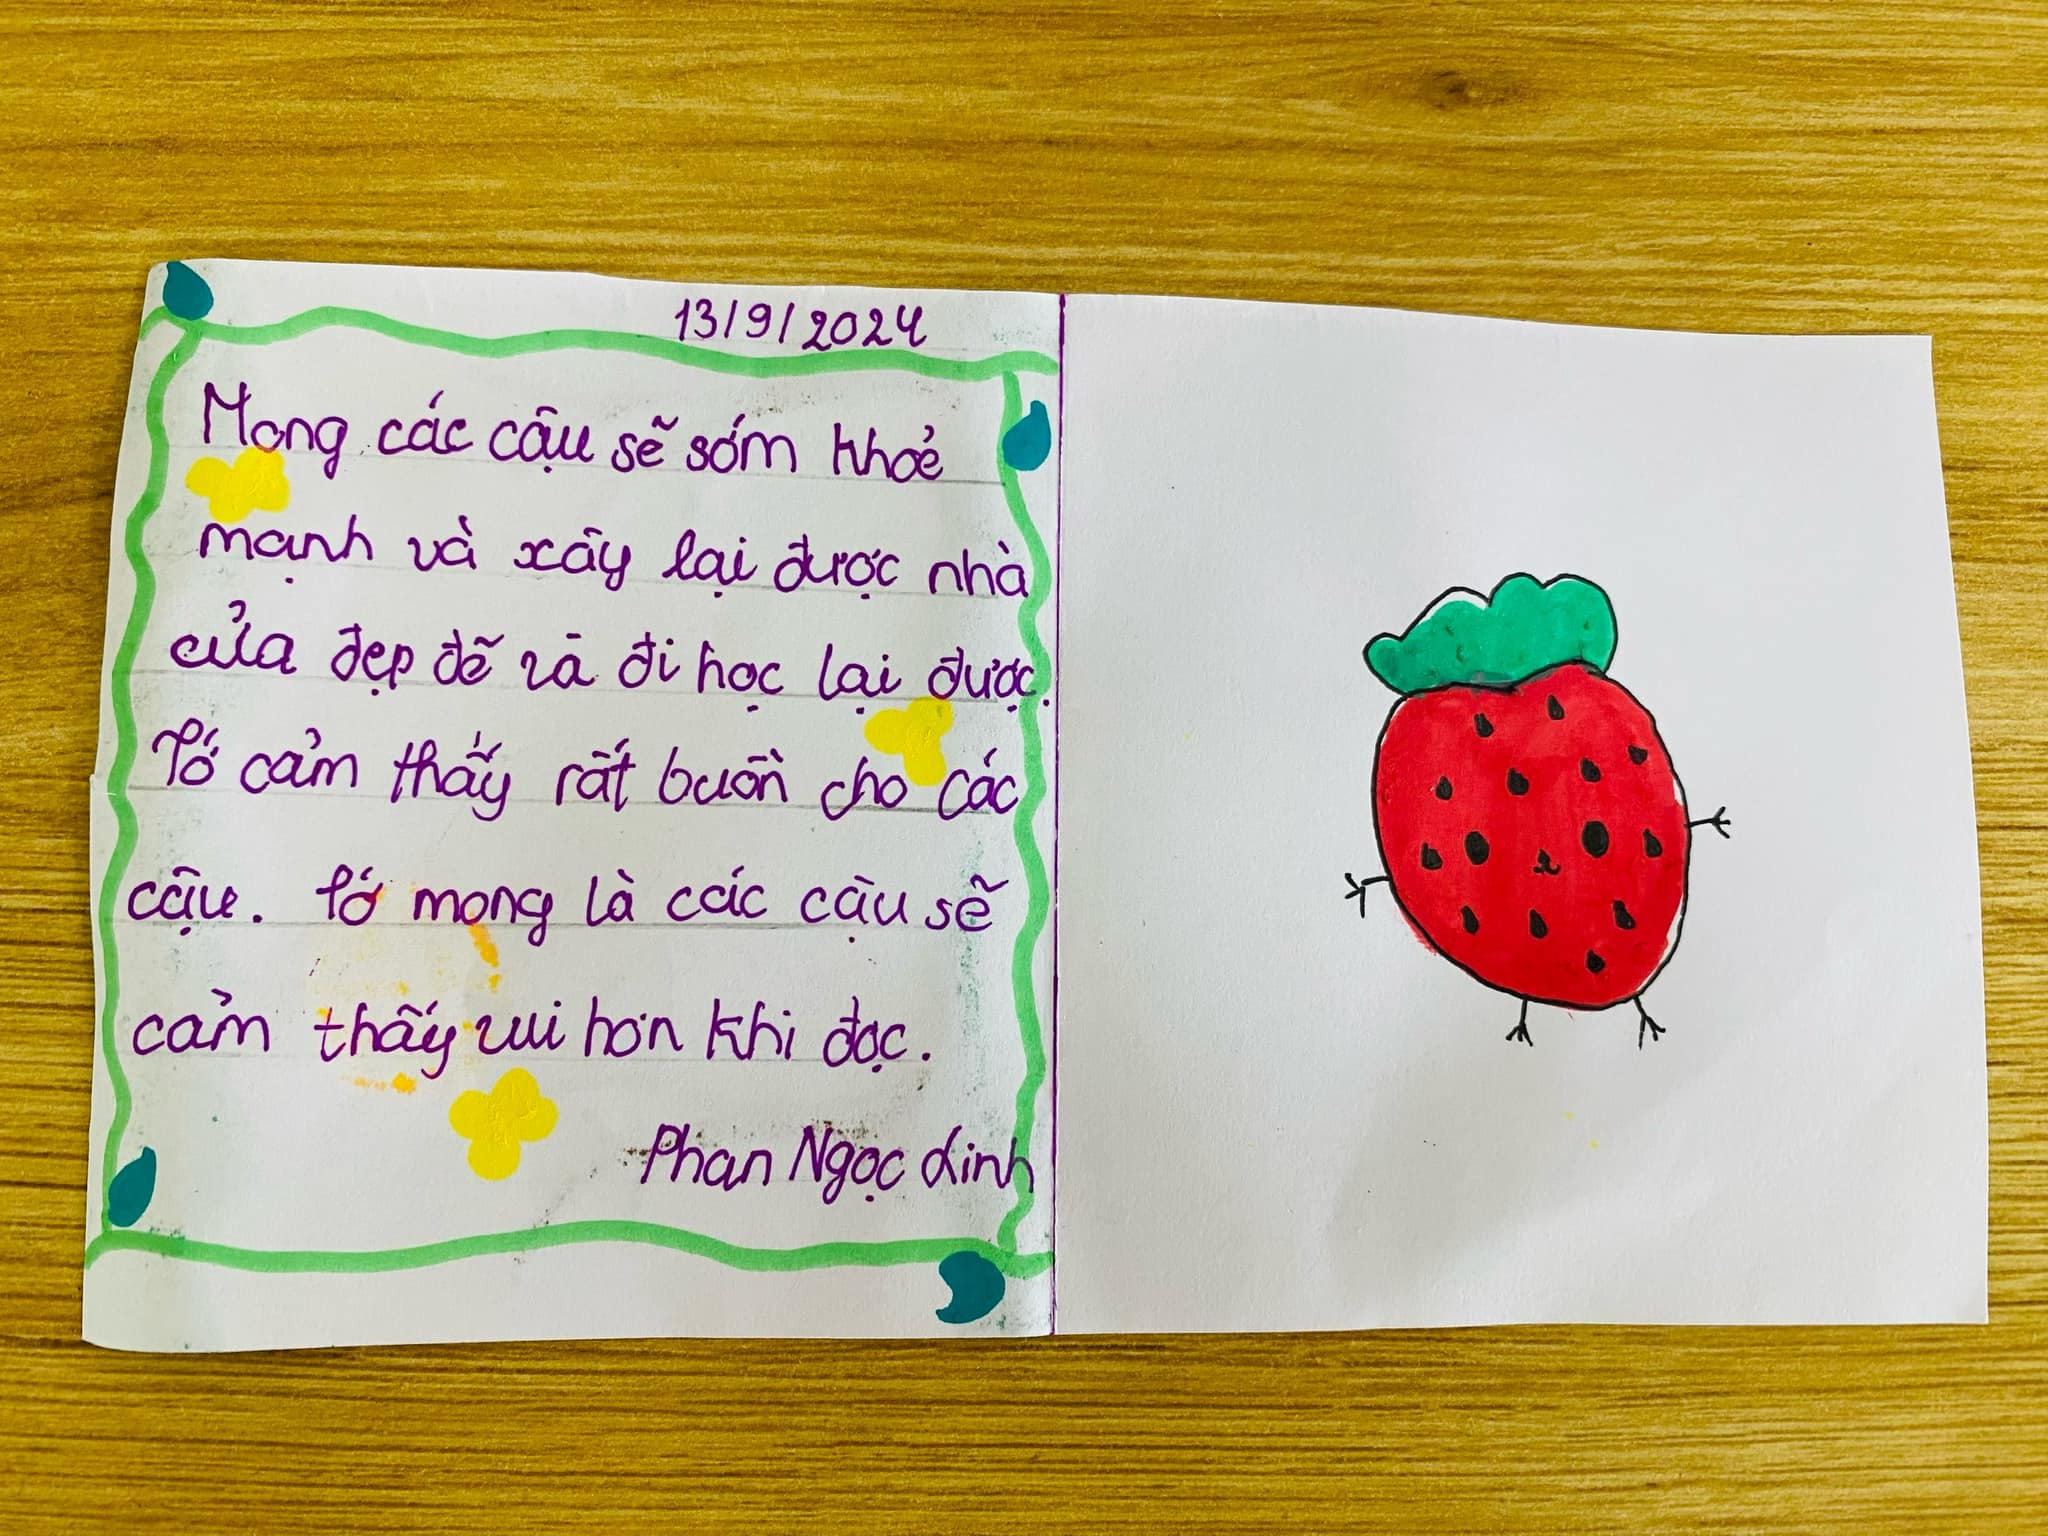 13/9/2024
Mong các cậu sẽ sớm khoẻ
mạnh và xây lại được nhà
cửa đẹp đẽ và đi học lại được.
Tớ cảm thấy rất buồn cho các
cậu. Tớ mong là các cậu sẽ
cảm thấy vui hơn khi đọc.
Phan Ngọc Linh